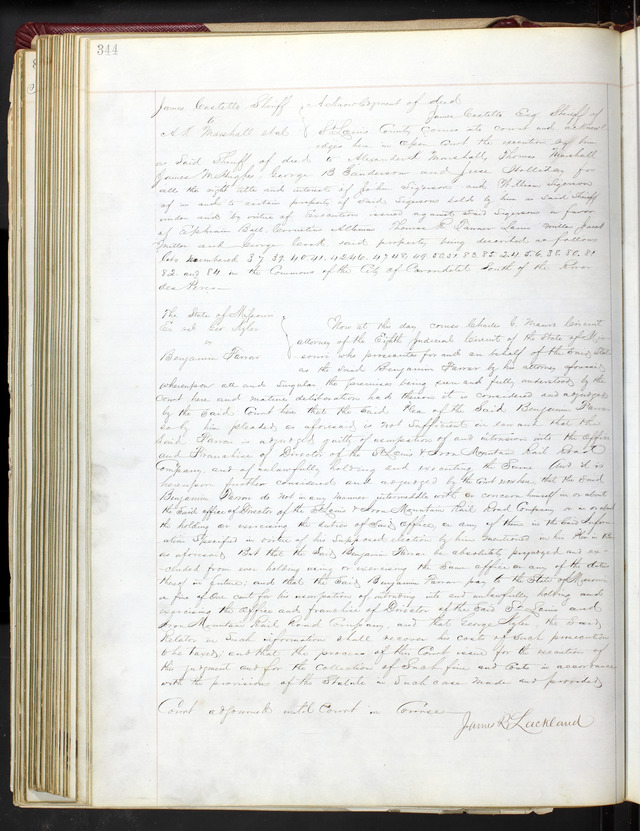 344
James Castello Sheriff } Acknowledgment of deed
to James Castello Esq Sheriff of
A. S. Marshall et al } St Louis County Comes into court and acknowl
edges here in Open Court the execution by him
as Said Sheriff of deed to Alexander Marshall, Thomas Marshall
James McHughs, George B Sanderson and Jesse Holliday for
all the right title and interest of John Sigerson and William Sigerson
of in and to certain property of said Sigersons sold by him as said Sheriff
under and by virtue of Execution issued against Said Sigersons in favor
of Ephraim Ball, Cornelius Thomas R. Lanner Lewis Miller Jacob
Miller and George Cook said property being described as follows
Lots numbered 37. 39. 40. 41. 42. 46. 47. 48. 49. 50. 51. 83. 85. 24. 56. 38. 80. 81
82. and 84 in the Commons of the City of Carondelet South of the River
des Peres
The State of Missouri
Ex rel Geo Kyler } Now at this day comes Charles C. Mauro Circuit
vs attorney of the Eighth Judicial Circuit of the State of Mis
Benjamin Farrar souri who prosecutes for and on behalf of the Said State
as the Said Benjamin Farrar by his attorney aforesaid
whereupon all and Singular the premises being seen and fully understood by the
Court here and mature deliberation had thereon it is considered and adjudged
by the Said Court here that the Said Plea of the Said Benjamin Farrar
so by him pleaded as aforesaid is not Sufficient in law and that the
Said Farrar is adjudged guilty of usurpation of and intrusion into the Office
and Franchise of Director of the St Louis & Iron Mountain Rail Road
Company, and of unlawfully holding and executing the Same And it is
hereupon further considered and adjudged by the Court now here that the Said
Benjamin Farrar do not in any manner intermeddle with or concern himself in or about
the Said office of Director of the St Louis & Iron Mountain Rail Road Company or in or about
the holding or exercising the duties of Said Office, or any of them in the Said Inform
ation Specified in virtue of his Supposed election by him mentioned in his Plea in Bar
as aforesaid But that the Said Benjamin Farrar be absolutely prejudged and ex-
cluded from ever holding using or exercising the Same office or any of the duties
thereof in future; and that the Said Benjamin Farrar pay to the State of Missouri
a fine of One cent for his usurpation of intruding into and unlawfully holding and
exercising the office and franchise of Director of the Said St Louis and
Iron Mountain Rail Road Company, and that George Kyler the Said
Relator in Such information Shall recover his costs of Such prosecution
to be taxed; and that the process of this Court issue for the execution of
the judgment and for the Collection of Such fine and Costs in accordance
with the provisions of the Statute in Such case made and provided
Court adjourned until Court in Course
James R. Lackland